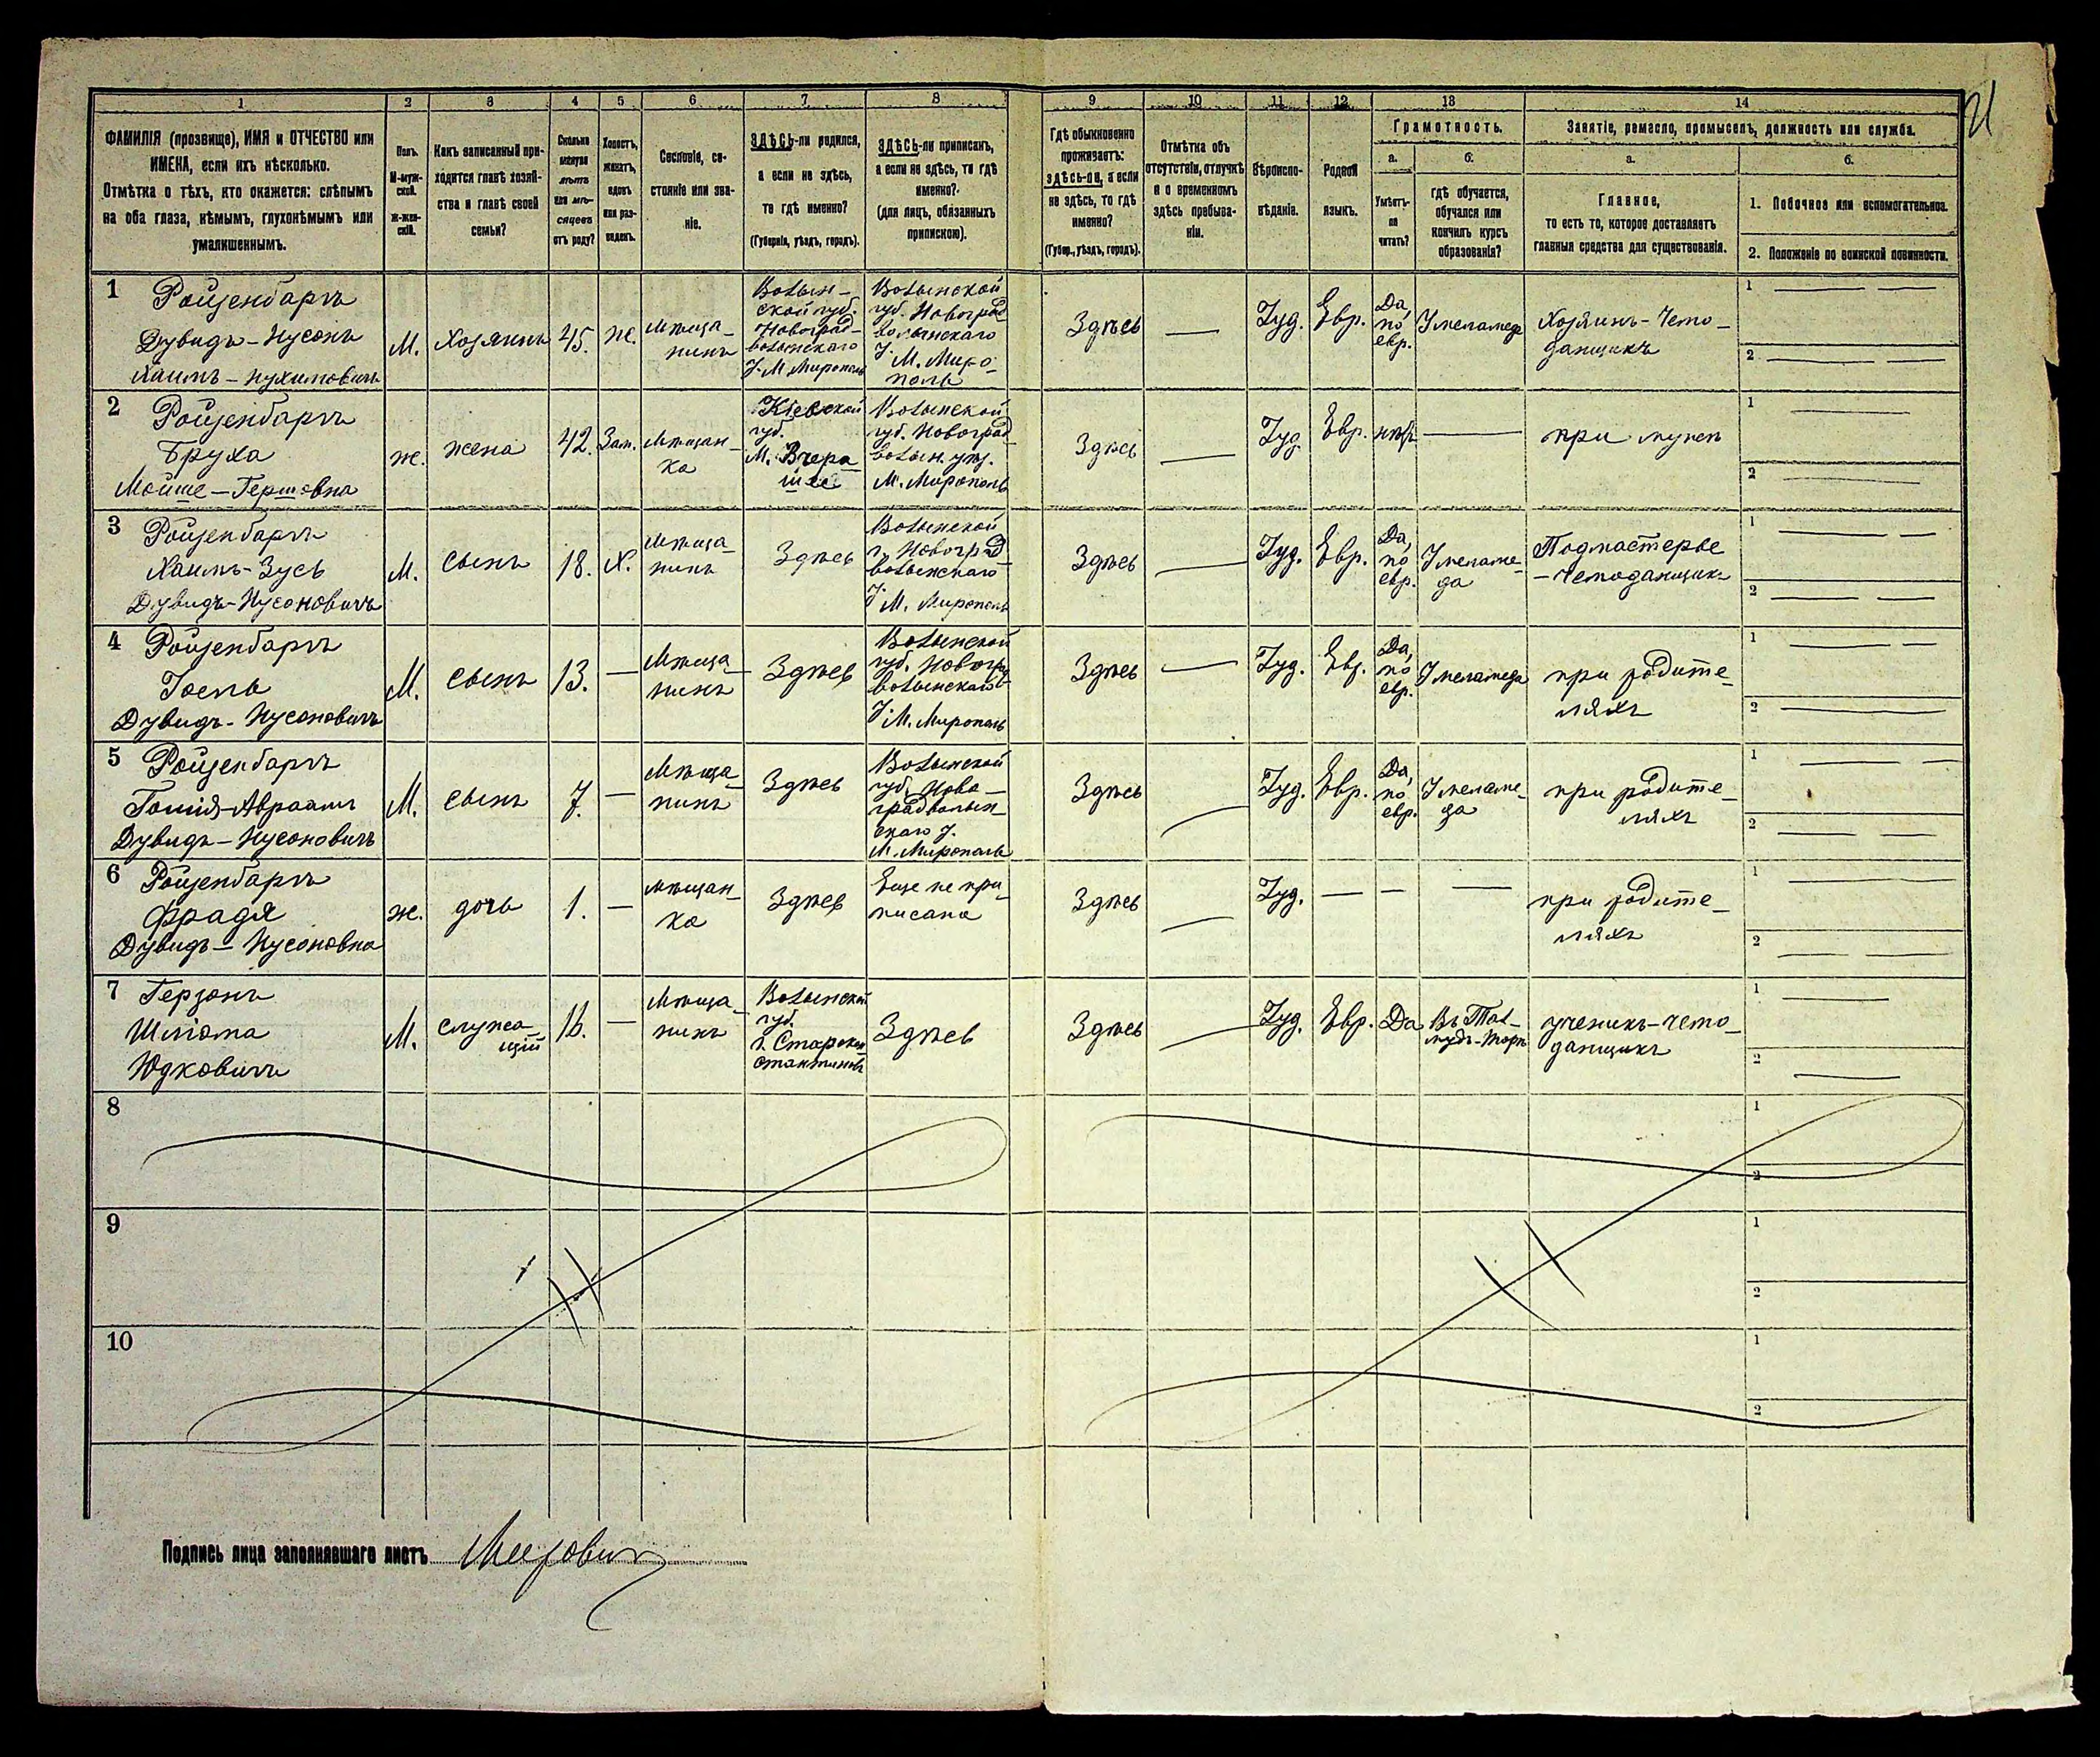 1 2 3 4 5 6 7 8 9 10 11 12 13 14
21
ФАМИЛІЯ (прозвище), ИМЯ и ОТЧЕСТВО или
ИМЕНА, если ихъ нѣсколько.
Отмѣтка о тѣхъ, кто окажется: слѣпымъ
на оба глаза, нѣмымъ, глухонѣмымъ или
умалишеннымъ.
Полъ.
М-муж-
ской.
Ж-жен-
скій.
Какъ записанный при-
ходится главѣ хозяй-
ства и главѣ своей
семьи?
Сколько
минуло
лѣтъ
или мѣ-
сяцевъ
отъ роду?
Холостъ,
женатъ,
вдовъ
или раз-
веденъ.
Сословіе, со-
стояніе или зва-
ніе.
ЗДѢСЬ-ли родился,
а если не здѣсь,
то гдѣ именно?
(Губернія, уѣздъ, городъ).
ЗДѢСЬ-ли приписанъ,
а если не здѣсь, то гдѣ
именно?
(для лицъ, обязанныхъ
припискою).
Гдѣ обыкновенно
проживаетъ:
здѣсь-ли, а если
не здѣсь, то гдѣ
именно?
(Губер., уѣздъ, городъ).
Отмѣтка объ
отсутствіи, отлучкѣ
и о временномъ
здѣсь пребыва-
ніи.
Вѣроиспо-
вѣданіе.
Родной
языкъ.
Грамотность.
а.
Умѣетъ-
ли
читать?
б.
гдѣ обучается,
обучался или
кончилъ курсъ
образованія?
Занятіе, ремесло, промыселъ, должность или служба.
а.
Главное,
то есть то, которое доставляетъ
главныя средства для существованія.
б.
1. Побочное или вспомогательное.
2. Положеніе по воинской повинности.
1 Ройзенбаргъ
Дувидъ-Нусонъ
Хаимъ-Нухимовичъ
М.
Хозяинъ
45.
ж.
Мѣща-
нинъ
Волын-
ской губ.
Новоград-
волынскаго
у. М Мирополь
Волынской
губ. Новоград
волынскаго
у. М. Миро-
поль
Здѣсь
Іуд.
Евр.
Да,
по
евр.
У меламеда
Хозяинъ-чемо-
данщикъ
1
2
2 Ройзенбаргъ
Бруха
Мойше-Гершовна
ж.
жена
42.
Зам.
Мѣщан-
ка
Кіевской
губ.
М. Вчера
йше
Волынской
губ. Новоград
волын. уѣз.
М. Мирополь
Здѣсь
Іуд.
Евр.
нѣтъ
при мужѣ
1
2
3 Ройзенбаргъ
Хаимъ-Зусь
Дувидъ-Нусоновичъ
М.
сынъ
18.
Х.
Мѣща-
нинъ
Здѣсь
Волынской
г. Новоград
волынскаго
у. М. Мирополь
Здѣсь
Іуд.
Евр.
Да,
по
евр.
У меламе-
да
Подмастерье
-чемоданщикъ
1
2
4 Ройзенбаргъ
Іосль
Дувидъ-Нусоновичъ
М.
сынъ
13.
Мѣща-
нинъ
Здѣсь
Волынской
губ. Новогр
волынскаго
у. М. Мирополь
Здѣсь
Іуд.
Евр.
Да,
по
евр.
У меламеда
при родите-
ляхъ
1
2
5 Ройзенбаргъ
Іошія-Авраамъ
Дувидъ-Нусоновичъ
М.
сынъ
7.
Мѣща-
нинъ
Здѣсь
Волынской
губ. Ново-
градволын-
скаго у.
М. Мирополь
Здѣсь
Іуд.
Евр.
Да,
по
евр.
У меламе-
да
при родите-
ляхъ
1
2
6 Ройзенбаргъ
Фрадя
Дувидъ-Нусоновна
ж.
дочь
1.
Мѣщан-
ка
Здѣсь
Еще не при-
писана
Здѣсь
Іуд.
при родите-
ляхъ
1
2
7 Герзонъ
Шліома
Юдковичъ
М.
служа-
щій
16.
Мѣща-
нинъ
Волынской
губ.
г. Старокон
стантиновъ
Здѣсь
Здѣсь
Іуд.
Евр.
Да
Въ Тал-
мудъ-Торѣ
ученикъ-чемо-
данщикъ
1
2
8
1
2
9
1
2
10
1
2
Подпись лица заполнявшаго листъ